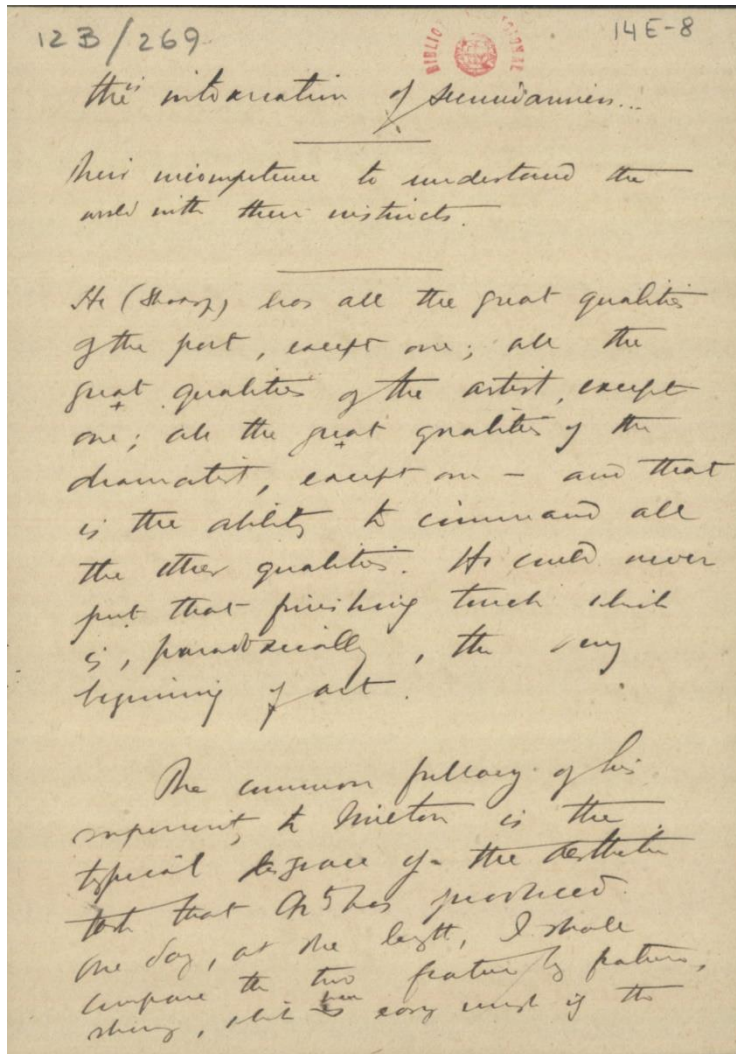 12B/269
14E-8
BIBLIO
the intoxication of
their incompetence to understand the
world with their instincts.
He (Shakesp) has all the great qualities
of the poet, except one; all the
great qualities of the artist, except
one; all the great qualities of the
dramatist, except one — and that
is the ability to command all
the other qualities. He could never
put that finishing touch which
is, paradoxically, the very
beginning of art.
The common fallacy of his
superiority to Milton is the
typical disgrace of the aesthetic
that has produced.
One day, at length, I shall
compare the two feature by feature,
, which easy